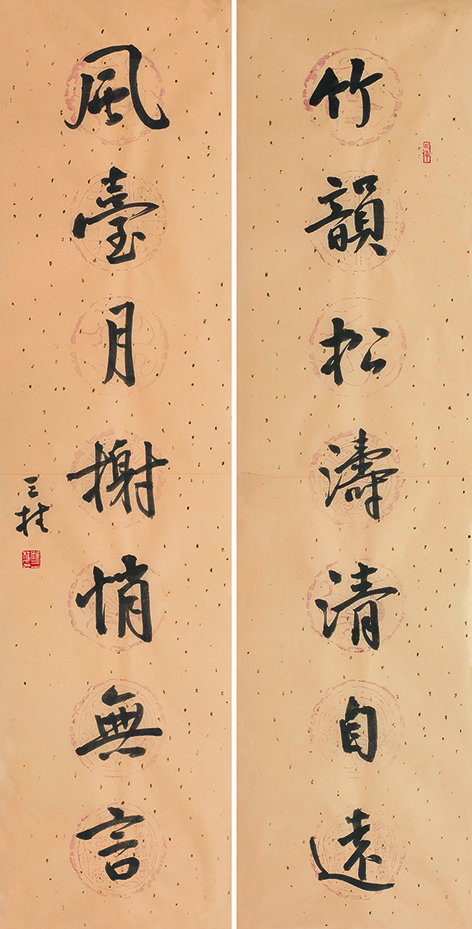 竹韻松濤清自遠
風臺月榭悄無言